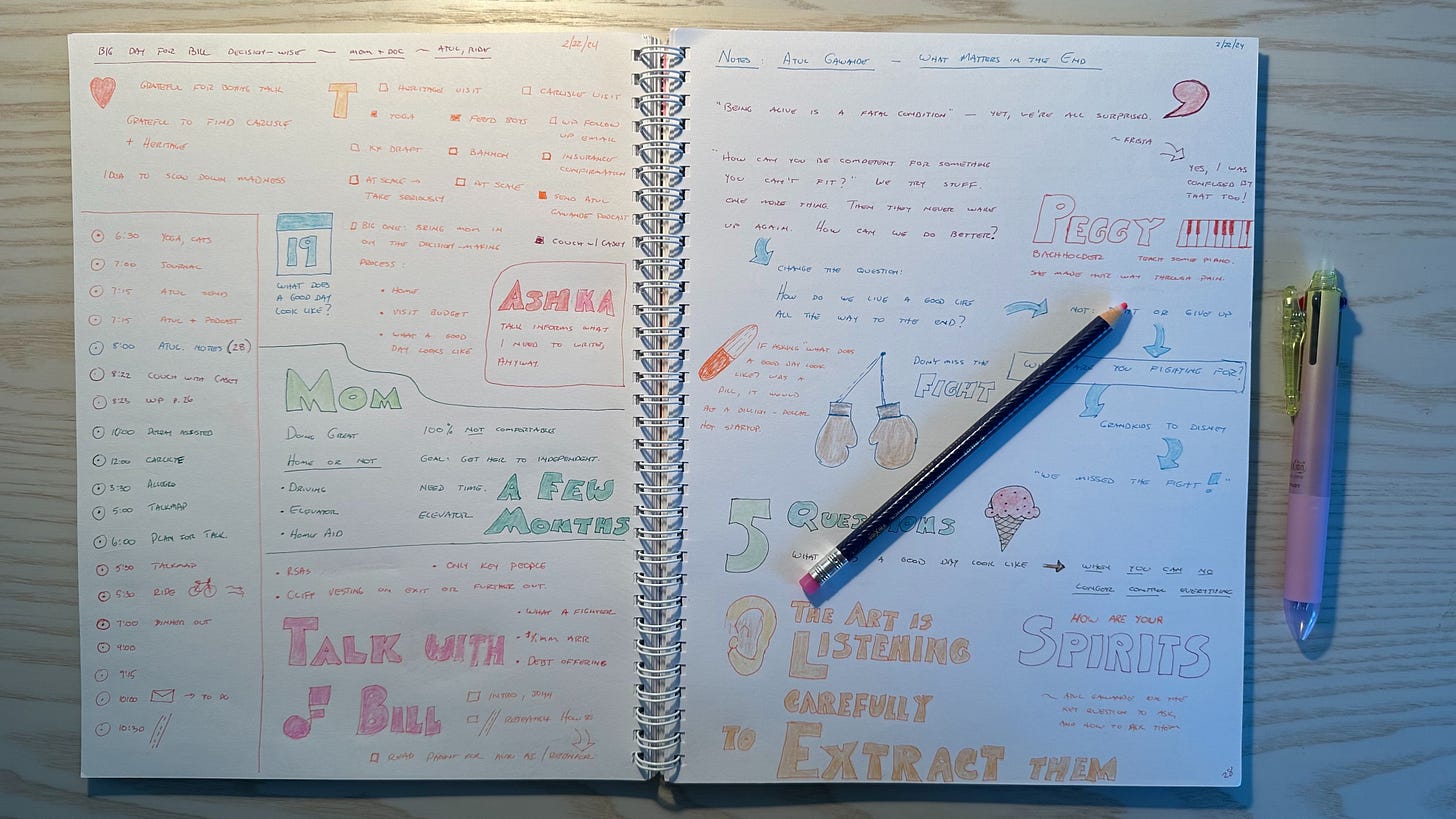 BIG DAY FOR BILL DECISION-WISE ~ MOM + DOC ~ ATUL, RIDE
2/22/24
GRATEFUL FOR BOTHS TALK
GRATEFUL TO FIND CARLISLE
+ HERITAGE
IDEA TO SLOW DOWN MADNESS
T
HERITAGE VISIT
CARLISLE VISIT
YOGA
FEED BOTS
WP FOLLOW
UP EMAIL
KX DRAFT
BANNON
INSURANCE
CONFIRMATION
AT SCALE →
TAKE SERIOUSLY
AT SCALE
SEND ATUL
GAWANDE PODCAST
BIG ONE: BRING MOM IN
ON THE DECISION-MAKING
PROCESS:
COUCH W/ CASEY
• HOME
• VISIT BUDGET
• WHAT A GOOD
DAY LOOKS LIKE
19
WHAT DOES
A GOOD DAY
LOOK LIKE?
ASHKA
TALK INFORMS WHAT
I NEED TO WRITE,
ANYWAY.
6:30 YOGA, CATS
7:00 JOURNAL
7:15 ATUL SEND
7:15 ATUL + PODCAST
8:00 ATUL NOTES (28)
8:22 COUCH WITH CASEY
8:25 WP P. 26
10:00 ASSISTED
12:00 CARLISLE
3:30 ALLEGRO
5:00 TALKMAP
6:00 PLAN FOR TALK
5:00 TALKMAP
5:30 RIDE
7:00 DINNER OUT
9:00
9:15
10:00 → TO DO
10:30
MOM
DOING GREAT
100% NOT COMFORTABLE
HOME OR NOT
GOAL: GET HER TO INDEPENDENT.
• DRIVING
NEED TIME.
A FEW
MONTHS
• ELEVATOR
ELEVATOR
• HOME AID
• RSAS
• ONLY KEY PEOPLE
• CLIFF VESTING ON EXIT OR FURTHER OUT.
• WHAT A FIGHTER
TALK WITH
BILL
• ARR
• DEBT OFFERING
INTRO, JOHN
RESEARCH
READ PATENT FOR
2/22/24
NOTES: ATUL GAWANDE — WHAT MATTERS IN THE END
"BEING ALIVE IS A FATAL CONDITION" — YET, WE'RE ALL SURPRISED.
~ KRISTA
YES, I WAS
CONFUSED BY
THAT TOO!
"HOW CAN YOU BE COMPETENT FOR SOMETHING
YOU CAN'T FIX?" WE TRY STUFF.
ONE MORE THING. THEN THEY NEVER WAKE
UP AGAIN. HOW CAN WE DO BETTER?
PEGGY
BACHHOLDER TEACH SOME PIANO.
SHE MADE HER WAY THROUGH PAIN.
CHANGE THE QUESTION:
HOW DO WE LIVE A GOOD LIFE
ALL THE WAY TO THE END?
NOT: OR GIVE UP
YOU FIGHTING FOR?
IF ASKING "WHAT DOES
A GOOD DAY LOOK
LIKE? WAS A
PILL, IT WOULD
BE A BILLION-DOLLAR
HOT STARTUP.
DON'T MISS THE
FIGHT
GRANDKIDS TO DISNEY
"WE MISSED THE FIGHT!"
5 QUESTIONS
A GOOD DAY LOOK LIKE → WHEN YOU CAN NO
LONGER CONTROL EVERYTHING
THE ART IS
LISTENING
CAREFULLY
TO EXTRACT THEM
HOW ARE YOUR
SPIRITS
~ ATUL GAWANDE ON THE
KEY QUESTION TO ASK,
AND HOW TO ASK THEM
28